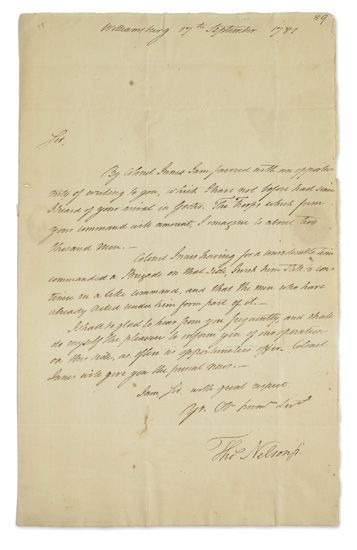 89
Williamsburg 17th September 1781
Sir,
By Colonel Innes I am favored with an opportu-
nity of writing to you, which I have not before had since
I heard of your arrival in Gloster. The Troops which form
your command will amount, I imagine to about two
thousand Men. —
Colonel Innes having for a considerable time
commanded a Brigade on that Side, I wish him Still to con-
tinue in a like command, and that the men who have
already Acted under him form part of it. —
I shall be glad to hear from you frequently, and shall
do myself the pleasure to inform you of our operations
on this side, as often as opportunities offer. Colonel
Innes will give you the present news. —
I am, Sir, with great respect
Yr. Ob. Humle Servt
Thos Nelson jr